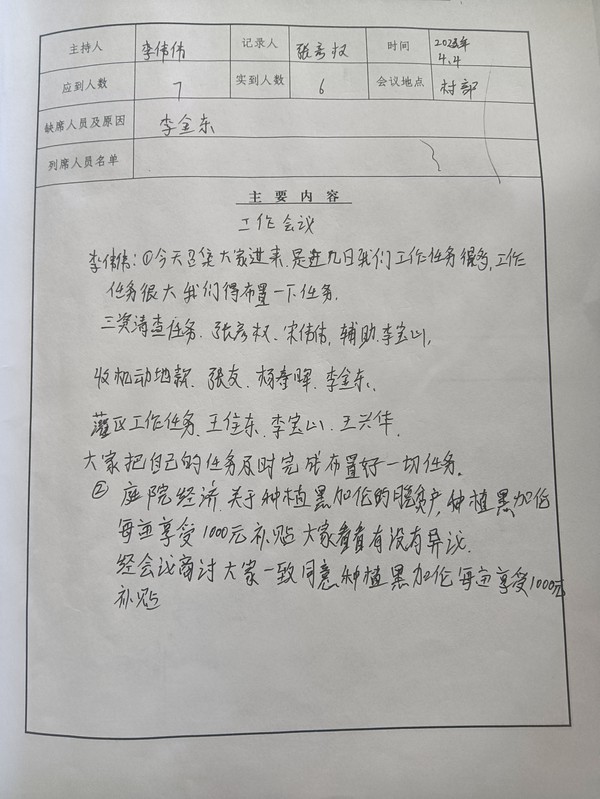 主持人 李伟伟 记录人 张彦权 时间 2023年4.4
应到人数 7 实到人数 6 会议地点 村部
缺席人员及原因 李金东
列席人员名单
主要内容
工作会议
李伟伟:①今天召集大家进来.是近几日我们工作任务很多,工作
任务很大我们得布置一下任务.
三资清查任务.张彦权.宋伟伟,辅助.李宝山,
收机动地款.张友.杨春晖.李金东、
灌区工作任务.王住东.李宝山.王兴华.
大家把自己的任务及时完成布置好一切任务.
② 庭院经济.关于种植黑加伦的脱贫户,种植黑加伦
每亩享受1000元补贴大家看看有没有异议.
经会议商讨大家一致同意种植黑加伦每亩享受1000元
补贴